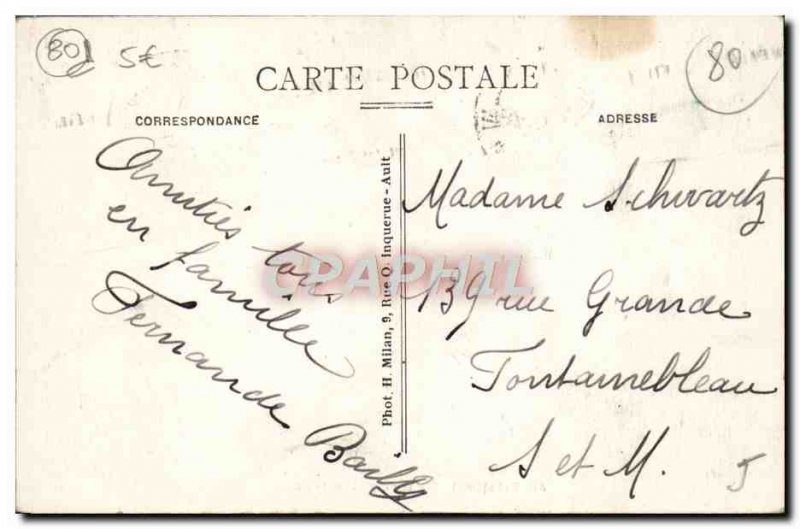 80
5€
80
CARTE POSTALE
CORRESPONDANCE
ADRESSE
Amitiés tous
en famille
Fernande Bailly
Phot. H. Milan, 9, Rue O. Inquerue - Ault
CPAPHIL
Madame Schwartz
139 rue Grande
Fontainebleau
S et M.